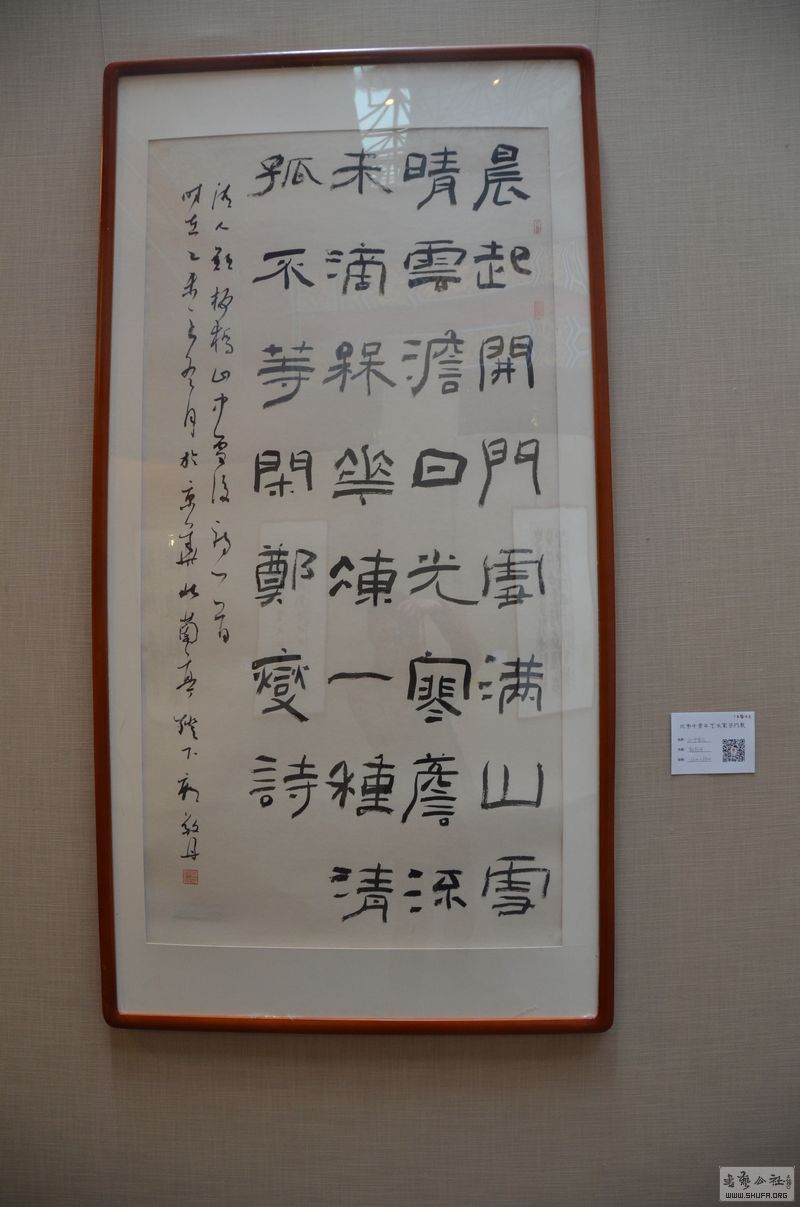 晨起開門雪满山雪
晴雲澹日光寒簷流
未滴槑華凍一種清
孤不等閑鄭燮詩
清人鄭板橋山中雪後詩一首
时在乙未之冬月於京華北蘭亭燈下
書藝公社
WWW.SHUFA.ORG